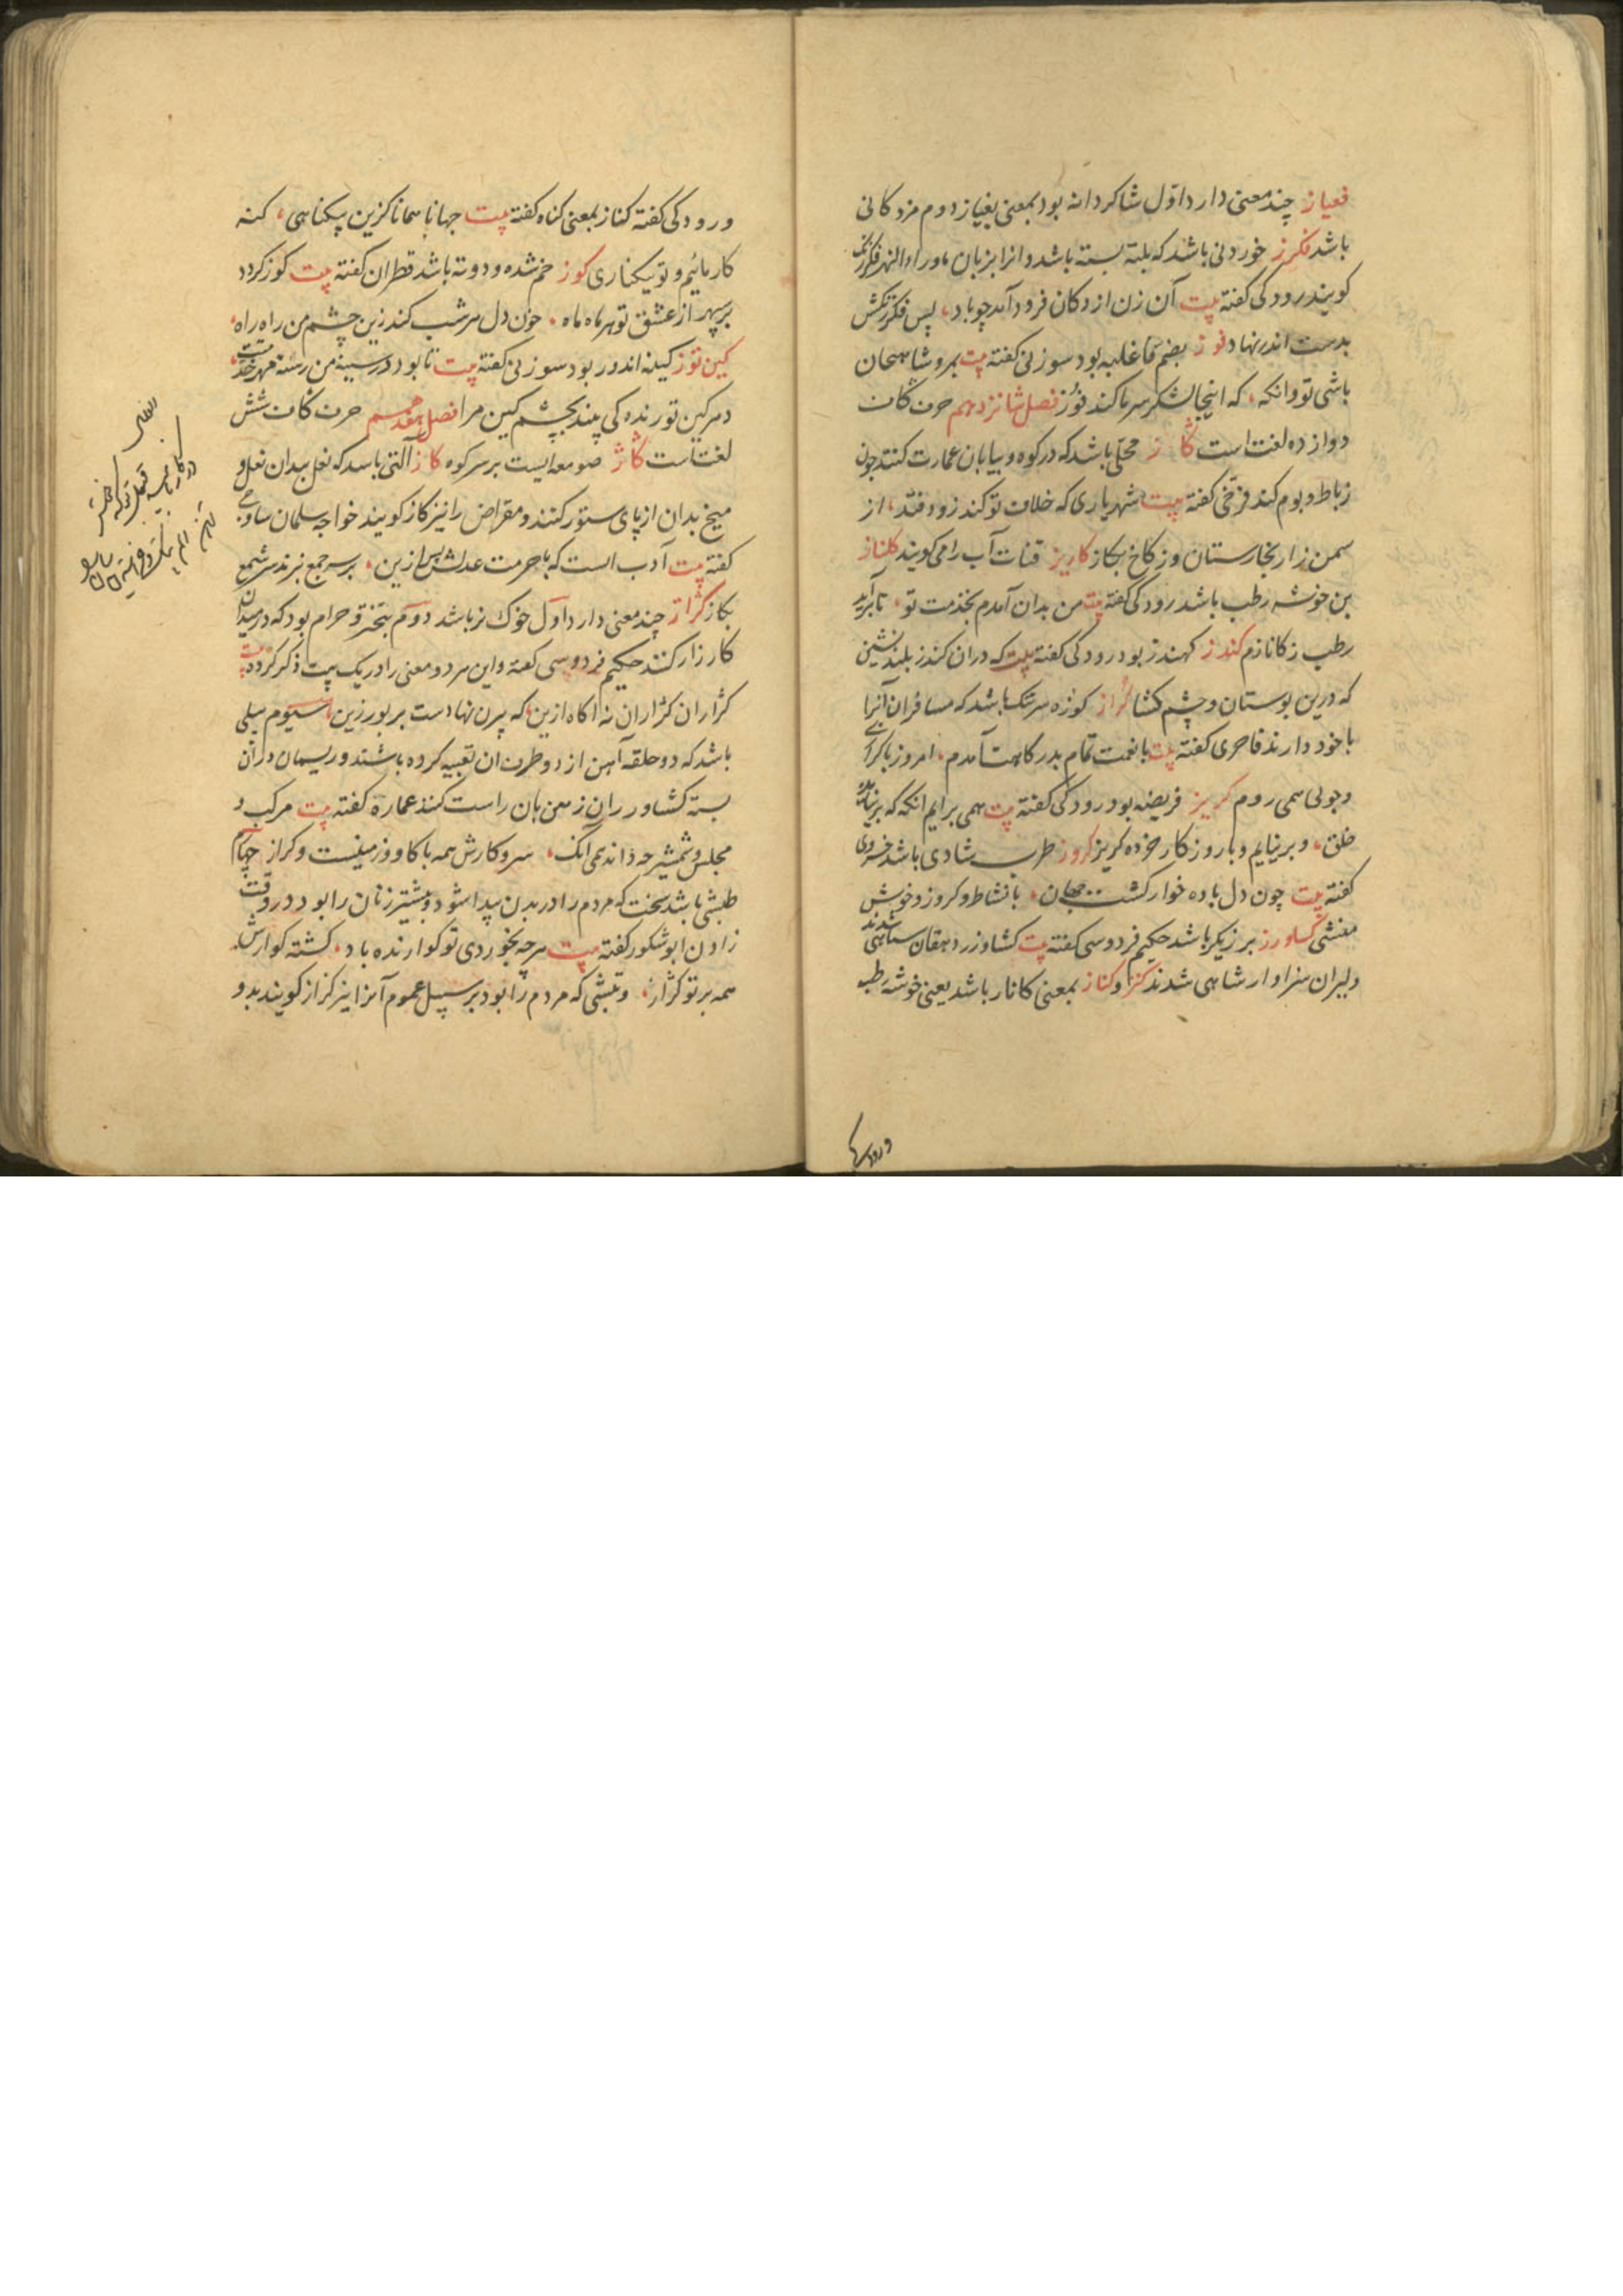 فغیاز چند معنی دارد اول شاکردانه بود بمعنی بغیاز دوم مزدکانی
باشد فکرز خوردنی باشد که بلته بسته باشد و انرا بزبان ماوراء النهر
کویند رودکی کفته بیت آن زن از دکان فرود آمد چو باد، پس فکرزنکش
بدست اندر نهاد فوز بضم فا غلبه بود سوزنی کفته بیت بمرو شاهیجان
باشی تو وانکه، که اینجا لشکر سرما کند فوز فصل شانزدهم حرف کاف
دوازده لغت است کاز محلی باشد که در کوه و بیابان عمارت کنند چون
رباط و بوم کند فرخی کفته بیت شهریاری که خلاف تو کند زود فتد، از
سمن زار بخارستان وز کاخ بکاز کاریز قنات آب را می کویند کلناز
بن خوشه رطب باشد رودکی کفته بیت من بدان آمدم بخدمت تو، تا برآید
رطب ز کانازم کندز کهندز بود رودکی کفته بیت که دران کندز بلند نشین
که درین بوستان و چشم کشا کراز کوزه سر تنک باشد که مسافران آنرا
با خود دارند فاخری کفته بیت با نعمت تمام بدرکاهت آمدم، امروز با کرازی
و چوبی همی روم کریز فریضه بود رودکی کفته بیت همی برایم انکه که برنیاید
خلق، و برنیایم و با روزکار خورده کریز کروز طرب و شادی باشد خسروی
کفته بیت چون دل باده خوار کشت جهان، با نشاط و کروز و خوش
منشی کشاورز برزیکر باشد حکیم فردوسی کفته بیت کشاورز و دهقان سپاهی شدند
دلیران سزاوار شاهی شدند کنز و کناز بمعنی کاناز باشد یعنی خوشه رطب
ورودکی
ورودکی کفته کناز بمعنی کناه کفته بیت جهانا همانا کزین بیکناهی، کنه
کار مائیم و تو بیکنازی کوز خم شده و دوته باشد قطران کفته بیت کوز کردد
بر سپهر از عشق تو هر ماه ماه، خون دل هر شب کند زین چشم من راه راه،
کین توز کینه اندوز بود سوزنی کفته بیت تا بود در سینه من رسته مهر خدمتت،
دهر کین توزنده کی بیند بچشم کین مرا فصل هفدهم حرف کاف شش
لغتست کاز صومعه ایست بر سر کوه کاز آلتی باسد که نعل بدان نعل و
میخ بدان از پای ستور کنند و مقراض را نیز کاز کویند خواجه سلمان ساوجی
کفته بیت آدب است که با حرمت عدلش پس ازین، بر سر جمع نبرند سر شمع
بکاز کراز چند معنی دارد اول خوک نر باشد دوم بتخترو خرام بود که در میدان
کارزار کنند حکیم فردوسی کفته و این هر دو معنی را در یک بیت ذکر کرده بیت
کرازان کرازان نه آکاه ازین، که بیژن نهادست بر بور زین سیوم بیلی
باشد که دو حلقه آهن از دو طرف ان تعبیه کرده باشند و ریسمان دران
بسته کشاورزان زمین بان راست کنند عماره کفته بیت مرکب و
مجلس و شمشیر چه داند همی آنک، سر و کارش همه با کاو و زمینست و کراز چهارم
طپشی باشد سخت که مردم را در بدن پیدا شود و بیشتر زنان را بود در وقت
زادن ابو شکور کفته بیت هرچه بخوردی تو کوارنده باد، کشته کوارش
همه بر تو کراز، و تبشی که مردم را بود بر سبیل عموم آنرا نیز کراز کویند بدو